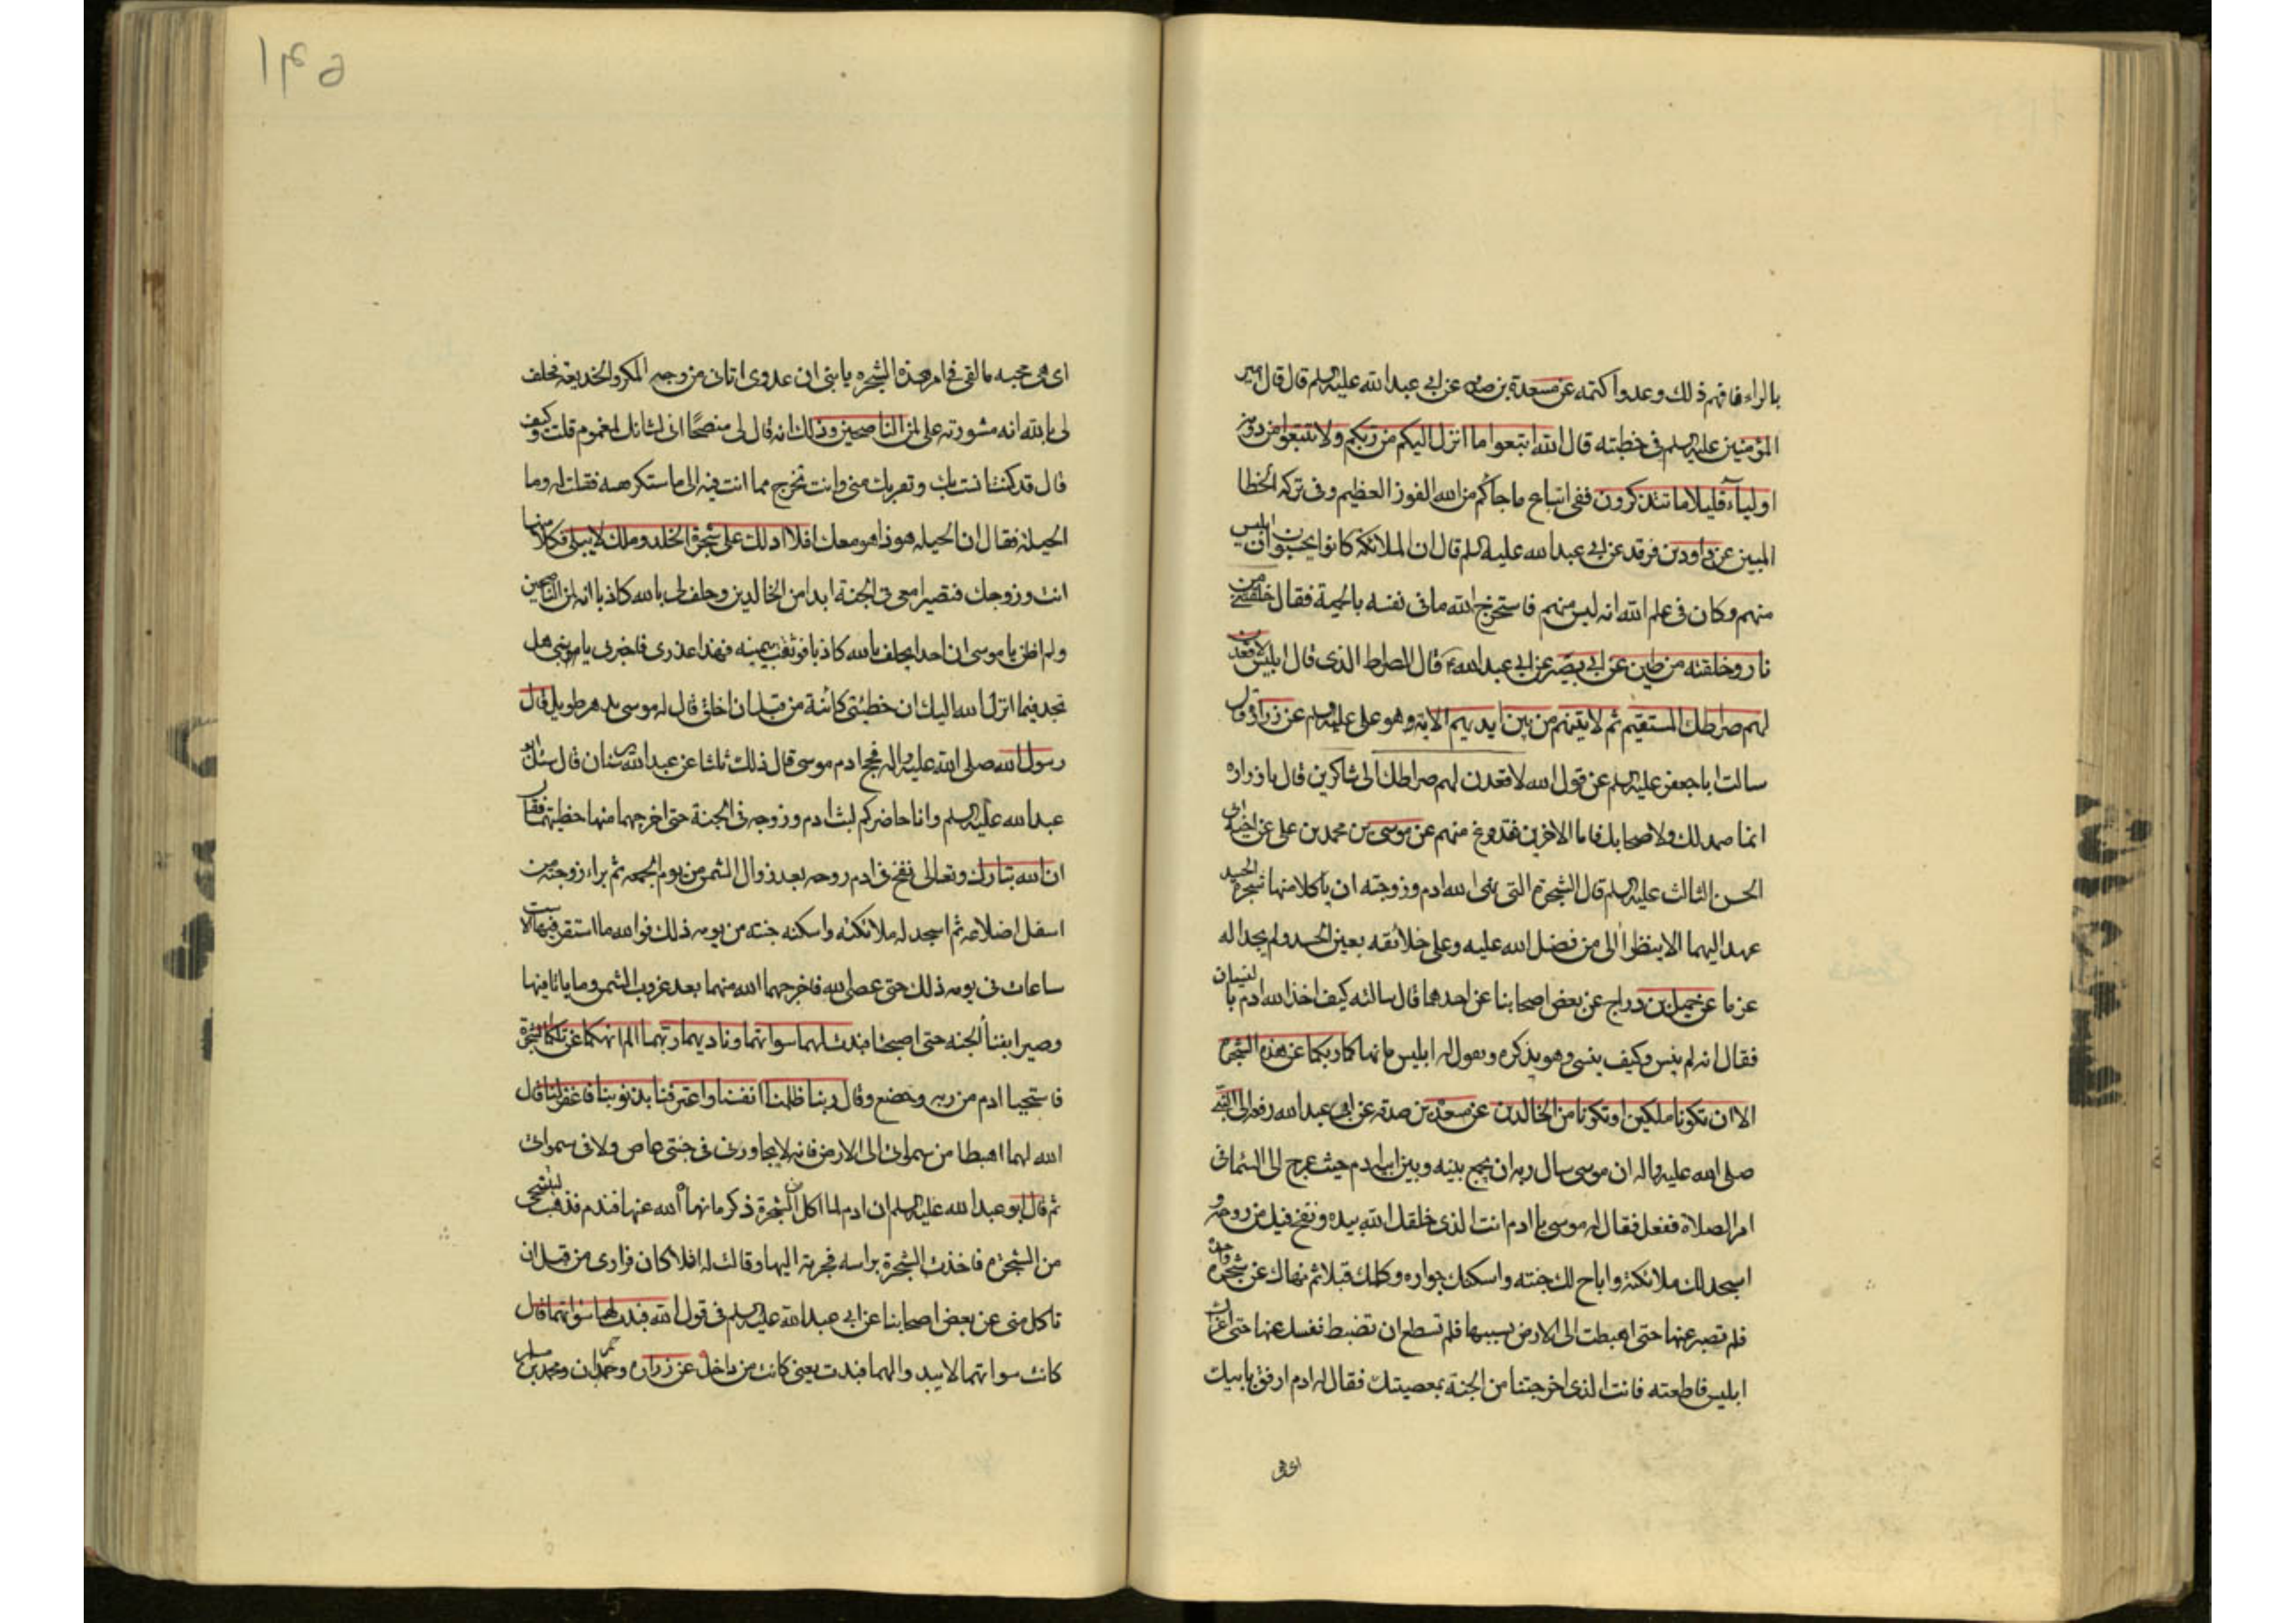 بالراء فافهم ذلك وعد واكتمه عن مسعدة بن صدقه عن ابي عبد الله عليه السلم قال قال امير
المؤمنين عليه السلم في خطبته قال الله اتبعوا ما انزل اليكم من ربكم ولا تتبعوا من دونه
اولياء قليلا ما تتذكرون ففي اتباع ما جاءكم من الله الفوز العظيم وفي تركه الخطا
المبين عن داود بن فرقد عن ابي عبد الله عليه السلم قال ان الملائكة كانوا يحسبون ان ابليس
منهم وكان في علم الله انه ليس منهم فاستخرج الله ما في نفسه بالحمية فقال خلقتني من
نار وخلقته من طين عن ابي بصير عن ابي عبد الله ع قال الصراط الذي قال ابليس لاقعدن
لهم صراطك المستقيم ثم لاتينهم من بين ايديهم الاية وهو علي عليه السلم عن زرارة قال
سالت ابا جعفر عليه السلم عن قول الله لاقعدن لهم صراطك الى شاكرين قال يا زراره
انما صمد لك ولاصحابك فاما الاخرين فقد فرغ منهم عن موسى بن محمد بن علي عن اخيه ابي
الحسن الثالث عليه السلم قال الشجرة التي نهى الله ادم وزوجته ان ياكلا منها شجرة الحسد
عهد اليهما الا ينظرا الى من فضل الله عليه وعلى خلائقه بعين الحسد ولم يجد الله له
عزما عن جميل بن دراج عن بعض اصحابنا عن احدهما قال سالته كيف اخذ الله ادم بالنسيان
فقال انه لم ينس وكيف ينسى وهو يذكره ويقول له ابليس ما نهاكما ربكما عن هذه الشجرة
الا ان تكونا ملكين او تكونا من الخالدين عن مسعدة بن صدقه عن ابي عبد الله رفعه الى النبي
صلى الله عليه واله ان موسى سال ربه ان يجمع بينه وبين ابيه ادم حيث عرج الى السماء في
امر الصلاة ففعل فقال له موسى يا ادم انت الذي خلقك الله بيده ونفخ فيك من روحه و
اسجد لك ملائكته واباح لك جنته واسكنك جواره وكلمك قبلا ثم نهاك عن شجرة واحدة
فلم تصبر عنها حتى اهبطت الى الارض بسببها فلم تستطع ان تضبط نفسك عنها حتى اغراك
ابليس فاطعته فانت الذي اخرجتنا من الجنة بمعصيتك فقال له ادم ارفق بابيك
اي بني
اي بني محبه ما لقي في امر هذه الشجره يا بني ان عدوي اتاني من وجه المكر والخديعة فحلف
لي بالله انه مشورته علي لمن الناصحين وذلك انه قال لي منتصحا اني لشانك لمغموم قلت وكيف
قال قد كنت انست بك وتقربك مني وانت تخرج مما انت فيه الى ما ستكرهه فقلت له وما
الحيلة فقال ان الحيله هوذا هو معك افلا ادلك على شجرة الخلد وملك لا يبلى فكلا منها
انت وزوجك فتصيرا معي في الجنة ابدا من الخالدين وحلف لي بالله كاذبا انه لمن الناصحين
ولم اظن يا موسى ان احدا يحلف بالله كاذبا فوثقت بيمينه فهذا عذري فاخبرني يا بني هل
تجد فيما انزل الله اليك ان خطيئتي كائنة من قبل ان اخلق قال له موسى بدهر طويل قال
رسول الله صلى الله عليه واله فحج ادم موسى قال ذلك ثلثا عن عبد الله بن سنان قال سئل ابو
عبد الله عليه السلم وانا حاضر كم لبث ادم وزوجه في الجنة حتى اخرجهما منها خطيتهما فقال
ان الله تبارك وتعالى نفخ في ادم روحه بعد زوال الشمس من يوم الجمعه ثم براء زوجته من
اسفل اضلاعه ثم اسجد له ملائكته واسكنه جنته من يومه ذلك فوالله ما استقر فيها الا ست
ساعات في يومه ذلك حتى عصى الله فاخرجهما الله منهما بعد غروب الشمس وما باتا فيها
وصيرا بفناء الجنه حتى اصبحا فبدت لهما سواتهما وناديهما ربهما الم انهكما عن تلكما الشجرة
فاستحيا ادم من ربه وخضع وقال ربنا ظلمنا انفسنا واعترفنا بذنوبنا فاغفر لنا قال
الله لهما اهبطا من سمواتي الى الارض فانه لا يجاورني في جنتي عاص ولا في سمواتي
ثم قال ابو عبد الله عليه السلم ان ادم لما اكل من الشجرة ذكر ما نهاه الله عنها فندم فذهب ليتنحى
من الشجره فاخذت الشجرة براسه فجرته اليها وقالت له افلا كان فرارك من قبل ان
تاكل مني عن بعض اصحابنا عن ابي عبد الله عليه السلم في قول الله فبدت لهما سواتهما قال
كانت سواتهما لا يبدو لهما فبدت يعني كانت من داخل عن زراره وحمران ومحمد بن مسلم